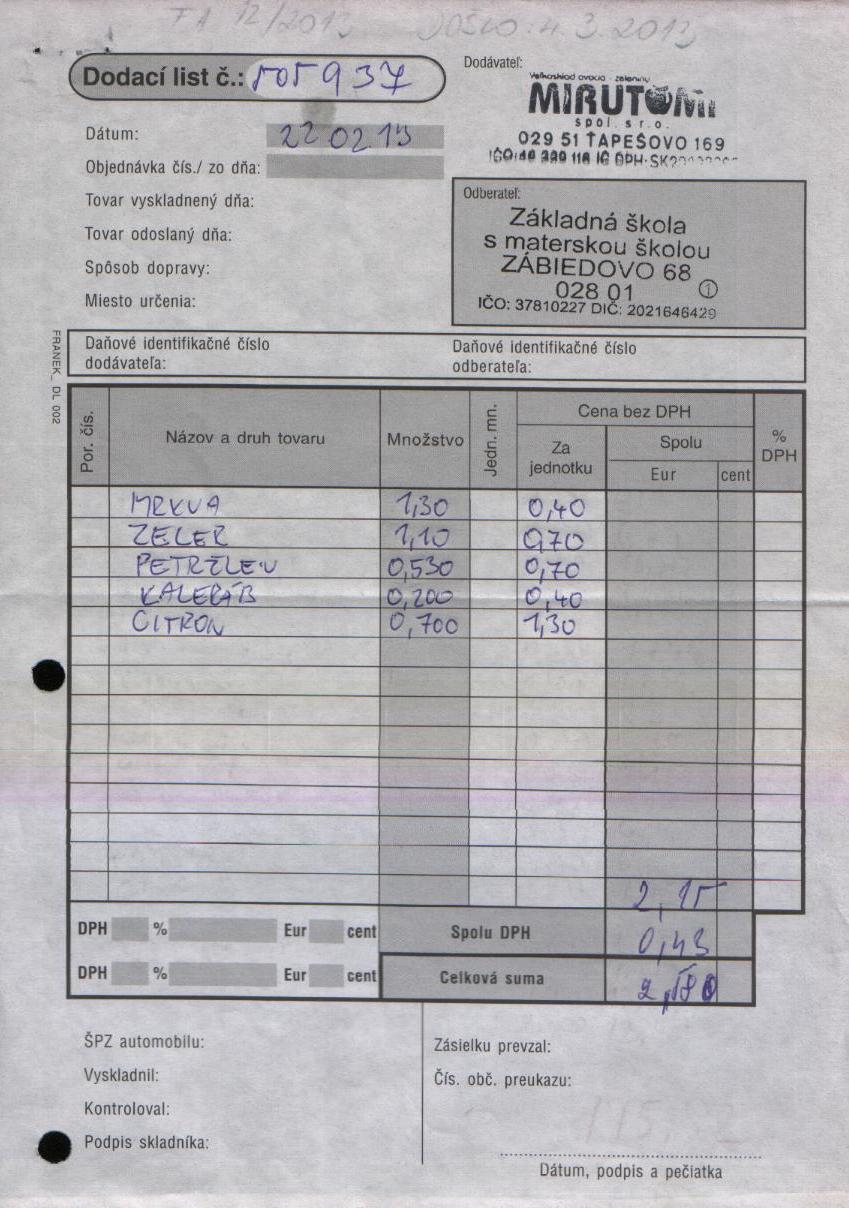 FA 12/2013 DOŠLO: 4.3.2013
Dodací list č.: 505937
Dodávateľ:
Veľkosklad ovocia - zeleniny
MIRUTOMI
spol. s r.o.
029 51 ŤAPEŠOVO 169
Dátum: 22 02 13
Objednávka čís./ zo dňa:
Tovar vyskladnený dňa:
Tovar odoslaný dňa:
Spôsob dopravy:
Miesto určenia:
Odberateľ:
Základná škola
s materskou školou
ZÁBIEDOVO 68
028 01 1
IČO: 37810227 DIČ: 2021646429
FRANEK_ DL 002
Daňové identifikačné číslo
dodávateľa:
Daňové identifikačné číslo
odberateľa:
Por. čís. Názov a druh tovaru Množstvo Jedn. mn. Cena bez DPH % DPH
Za jednotku Spolu
Eur cent
MRKVA 1,30 0,40
ZELER 1,10 0,70
PETRŽLEN 0,530 0,70
KALERÁB 0,200 0,40
CITRON 0,700 1,30
2,15
DPH % Eur cent Spolu DPH 0,43
DPH % Eur cent Celková suma
ŠPZ automobilu:
Vyskladnil:
Kontroloval:
Podpis skladníka:
Zásielku prevzal:
Čís. obč. preukazu:
Dátum, podpis a pečiatka